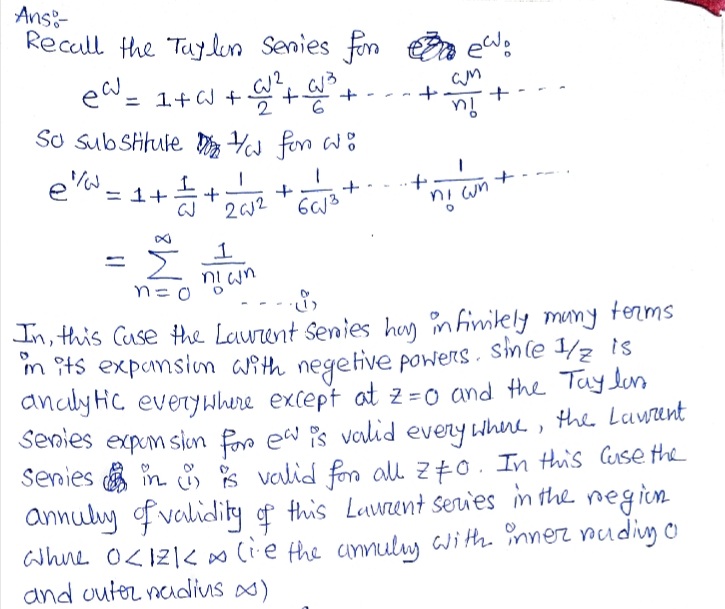 Ans:-
Recall the Taylor Series for e^ω:
e^ω = 1 + ω + ω²/2 + ω³/6 + ---- + ωⁿ/n! + ---
So substitute 1/ω for ω:
e^{1/ω} = 1 + 1/ω + 1/2ω² + 1/6ω³ + ---- + 1/n! ωⁿ + ----
= ∞ Σ n=0 1/n! ωⁿ
---- (i)
In, this case the Laurent series has infinitely many terms
in its expansion with negetive powers. since 1/z is
analytic everywhere except at z=0 and the Taylor
series expansion for e^ω is valid everywhere, the Laurent
series in (i) is valid for all z≠0. In this case the
annulus of validity of this Laurent series in the region
where 0<|z|<∞ (i.e the annulus with inner radius 0
and outer radius ∞)